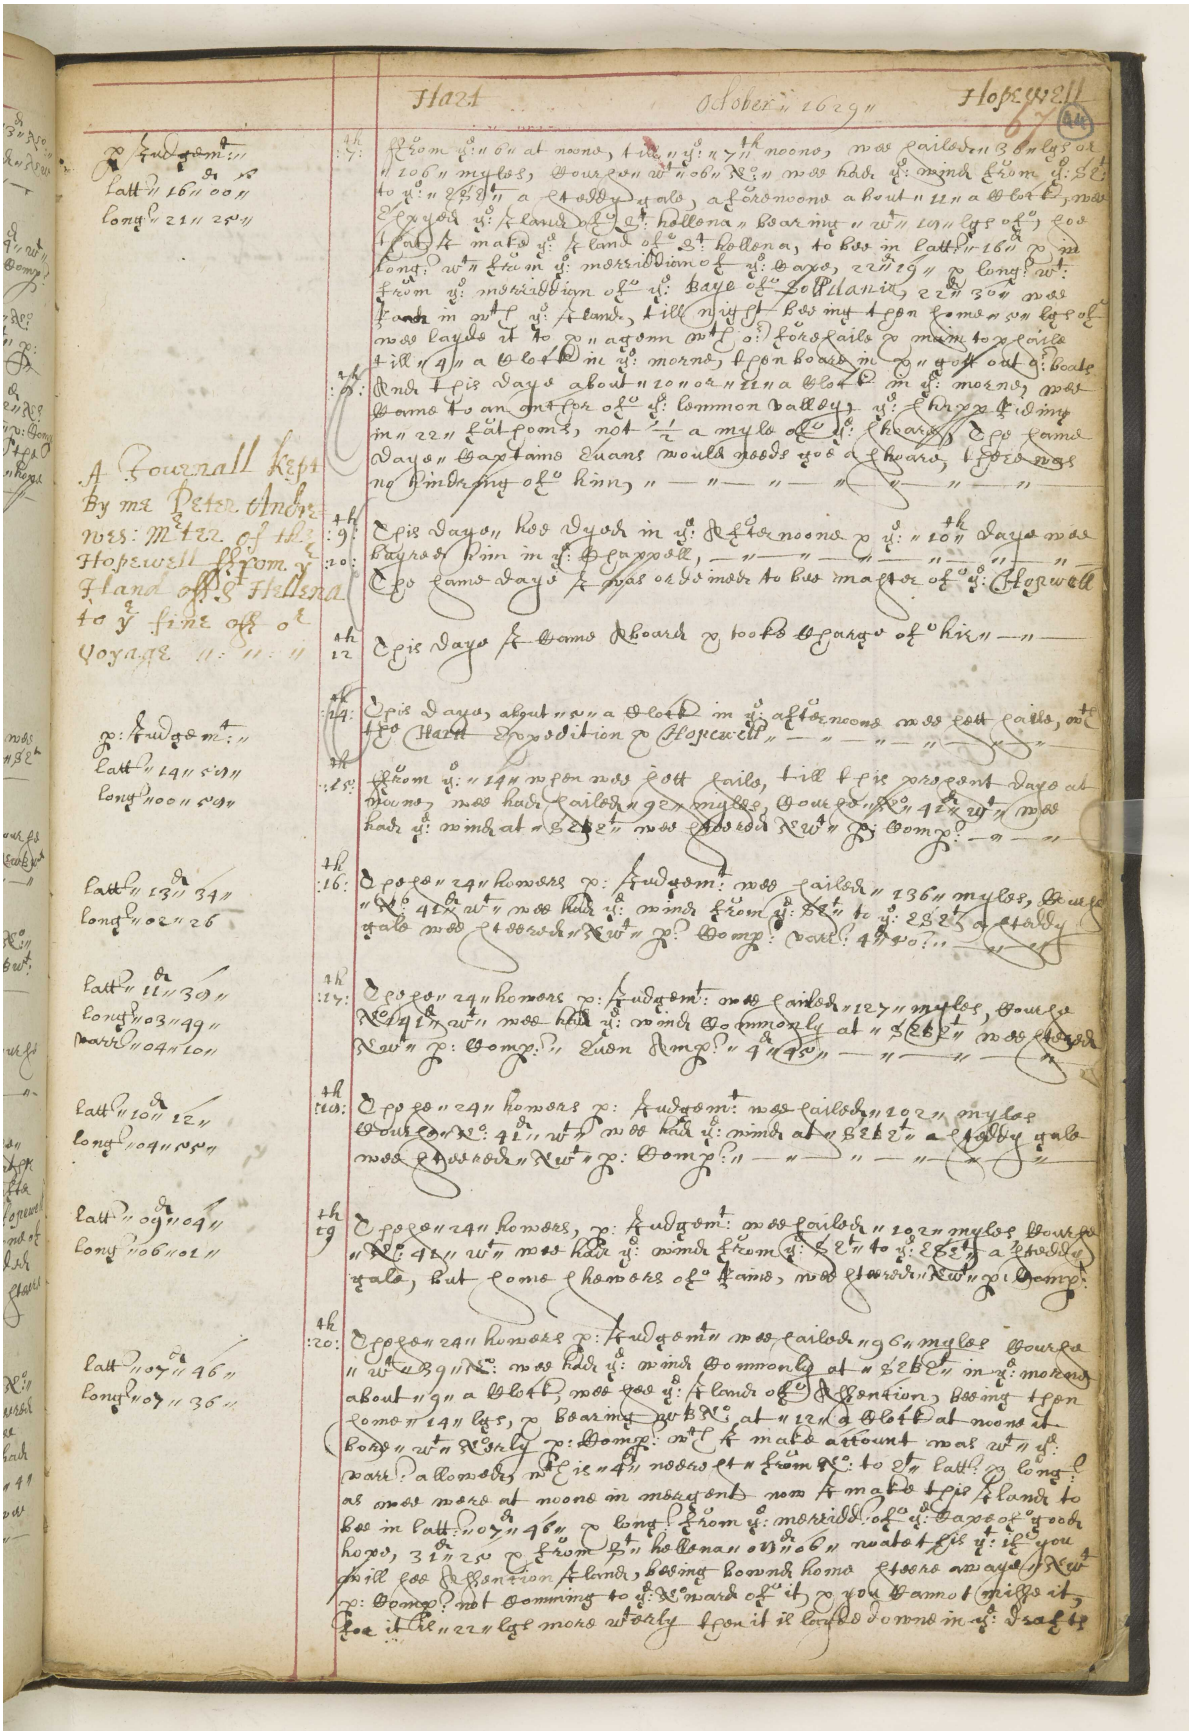 Hart October 1629 Hopewell
67
44
p Judgemt:
:7: th ffrom ye: 6 at noone, till ye: 7 th noone, wee sailed 36 lgs or
latt 16 d 00
106 myles, Course wt 06 No: wee had ye: wind from ye: SEt
long 21 25
to ye: ESEt a steddy gale, aforenoone about 11 a Clock, wee
Spyed ye: Iland of St hellena bearing wt 19 lgs of, soe
that I make ye: Iland of St: hellena, to bee in latt 16 d p in
long: wt from ye: merriddian of ye: Cape, 22 d 19 p long: wt:
from ye: merriddian of ye: Baye of Solldania, 22 d 30 wee
stood in wth ye: Iland, till night beeing then some 5 lgs of
wee layde it to p agenn wth or: foresaile p maintopsaile
till 4 a Clock in ye: morne, then boare in p gott out or: boats
:8: th And this daye about 10 or 11 a Clock in ye: morne, wee
Came to an anchor of ye: lemmon valley, ye: Chapp Rideing
in 22 fathoms, not 1/2 a myle of ye: shoare, The same
daye Captaine Evans would needs goe a shoare, there was
no hindring of him,
A Journall Kept
By me Peter Andre
wes: Mr ter of the
Hopewell ffrom ye
Iland off St Hellena
to ye fine off or
Voyage
:9: th This daye hee dyed in ye: Afternoone p ye: 10 th daye wee
:10: buyred him in ye: Chappell,
The same daye I was ordeined to bee master of ye: Hopewell
12 th This daye I Came Aboard p tooke Charge of hir
:14: th This daye, about 5 a Clock in ye: afternoone wee sett saile, wth
the Hartt Expedition p Hopewell
p: Judgemt:
:15: th ffrom ye: 14 when wee sett saile, till this present daye at
latt 14 59
noone, wee had sailed 92 myles, Course No 41 d wt wee
long 00 59
had ye: wind at SEBEt wee steered NWt p: Comp:
:16: th These 24 howers p: Judgemt: wee sailed 136 myles, Course
latt 13 d 34
No: 41 d wt wee had ye: wind from ye: SEt to ye: ESEt a steddy
long 02 26
gale wee steered NWt p: Comp: varr: 4 d 50
:17: th These 24 howers p: Judgemt: wee sailed 127 myles, Course
latt 11 d 39
No: 41 d wt wee had ye: wind Commonly at SEBEt wee steered
long 03 49
NWt p: Comp: Even Amp: 4 d 45
varr 04 10
:18: th These 24 howers p: Judgemt: wee sailed 102 myles
latt 10 d 12
Course No: 41 d wt wee had ye: wind at SEBEt a steddy gale
long 04 55
wee steered NWt p: Comp:
19 th These 24 howers, p: Judgemt: wee sailed 102 myles Course
latt 09 d 04
No: 41 wt wee had ye: wind from ye: SEt to ye: ESEt a steddy
long 06 01
gale, but some showers of Raine, wee steered NWt p: Comp:
:20: th These 24 howers p: Judgemt wee sailed 96 myles Course
latt 07 d 46
wt 39 No: wee had ye: wind Commonly at SEBEt in ye: morne
long 07 36
about 9 a Clock, wee see ye: Iland of Assention, beeing then
some 14 lgs, p bearing wBNo at 12 a Clock at noone it
bore wt Noerly p: Comp: wth I make account was wt ye:
varr: allowed, wth is 4 d neerest from No: to Et latt: p long:
as wee were at noone in mergent now I make this Iland to
bee in latt: 07 d 46 p long: from ye: merridd: of ye: Cape of good
hope, 31 d 25 p from St hellena 09 d 06 noate this yt: if you
will see Assention Iland, beeing bownd home steere awaye NWt
p: Comp: not Comming to ye: Noward of it, p you Cannot misse it,
for it is 22 lgs more wterly then it is layde downe in ye: drafts